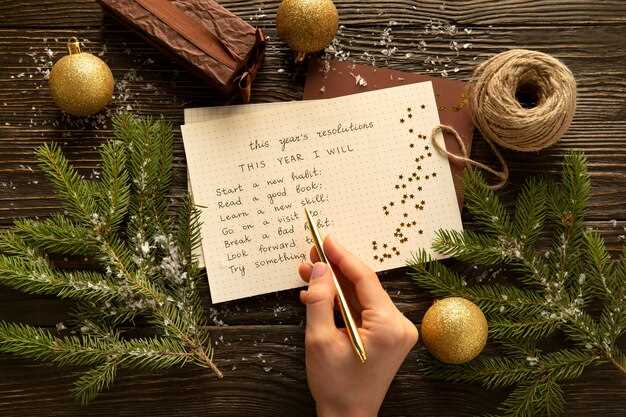 this year's resolutions
THIS YEAR I WILL
Start a new habit;
Read a good book;
Learn a new skill;
Go on a visit to
Break a bad
Look forward
Try something